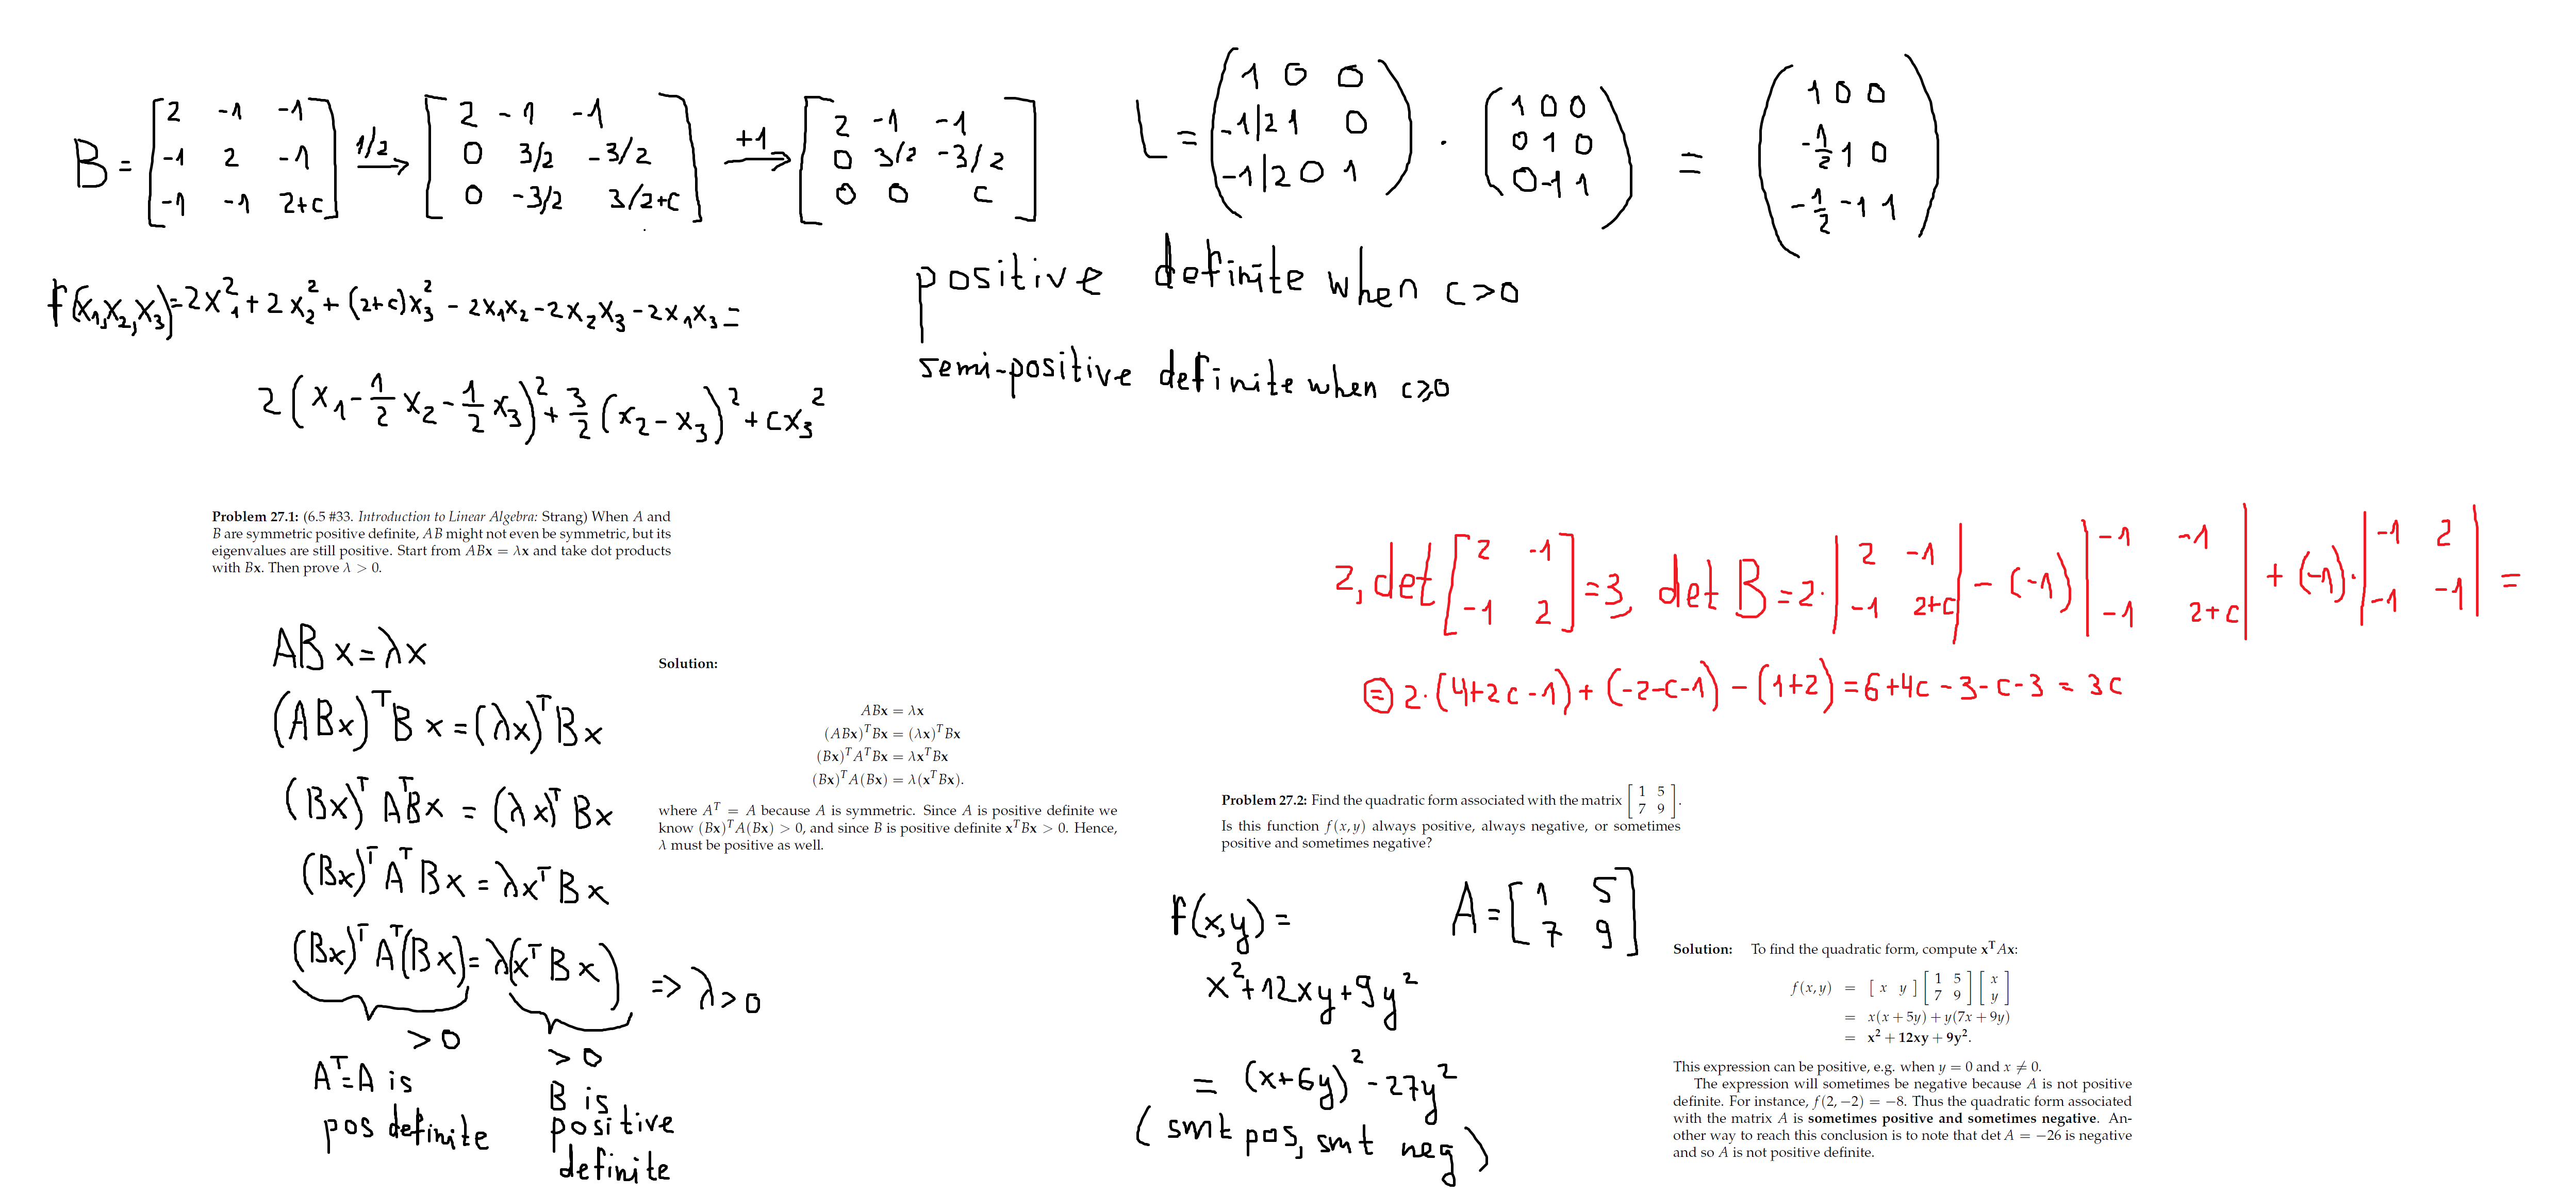 B = [2 -1 -1; -1 2 -1; -1 -1 2+c] 1/2→ [2 -1 -1; 0 3/2 -3/2; 0 -3/2 3/2+c] +1→ [2 -1 -1; 0 3/2 -3/2; 0 0 c]
L = (1 0 0; -1/2 1 0; -1/2 0 1) · (1 0 0; 0 1 0; 0 -1 1) = (1 0 0; -1/2 1 0; -1/2 -1 1)
f(x₁,x₂,x₃)=2x₁²+2x₂²+(2+c)x₃² - 2x₁x₂-2x₂x₃-2x₁x₃=
2(x₁-1/2 x₂-1/2 x₃)²+3/2(x₂-x₃)²+cx₃²
positive definite when c>0
semi-positive definite when c⩾0
Problem 27.1: (6.5 #33. Introduction to Linear Algebra: Strang) When A and
B are symmetric positive definite, AB might not even be symmetric, but its
eigenvalues are still positive. Start from ABx = λx and take dot products
with Bx. Then prove λ > 0.
ABx=λx
(ABx)ᵀBx=(λx)ᵀBx
(Bx)ᵀAᵀBx = (λx)ᵀBx
(Bx)ᵀAᵀBx=λxᵀBx
(Bx)ᵀAᵀ(Bx)=λ(xᵀBx) => λ>0
>0
Aᵀ=A is
pos definite
>0
B is
positive
definite
Solution:
ABx = λx
(ABx)ᵀBx = (λx)ᵀBx
(Bx)ᵀAᵀBx = λxᵀBx
(Bx)ᵀA(Bx) = λ(xᵀBx).
where Aᵀ = A because A is symmetric. Since A is positive definite we
know (Bx)ᵀA(Bx) > 0, and since B is positive definite xᵀBx > 0. Hence,
λ must be positive as well.
2, det[2 -1; -1 2]=3, det B=2·|2 -1; -1 2+c| - (-1)|-1 -1; -1 2+c| + (-1)·|-1 2; -1 -1| =
⊜ 2·(4+2c-1)+(-2-c-1)-(1+2)=6+4c-3-c-3=3c
Problem 27.2: Find the quadratic form associated with the matrix [1 5; 7 9].
Is this function f(x,y) always positive, always negative, or sometimes
positive and sometimes negative?
f(x,y)=
A=[1 5; 7 9]
x²+12xy+9y²
= (x+6y)²-27y²
(smt pos, smt neg)
Solution: To find the quadratic form, compute xᵀAx:
f(x,y) = [x y][1 5; 7 9][x; y]
= x(x+5y)+y(7x+9y)
= x²+12xy+9y².
This expression can be positive, e.g. when y = 0 and x ≠ 0.
The expression will sometimes be negative because A is not positive
definite. For instance, f(2,−2) = −8. Thus the quadratic form associated
with the matrix A is sometimes positive and sometimes negative. An-
other way to reach this conclusion is to note that det A = −26 is negative
and so A is not positive definite.